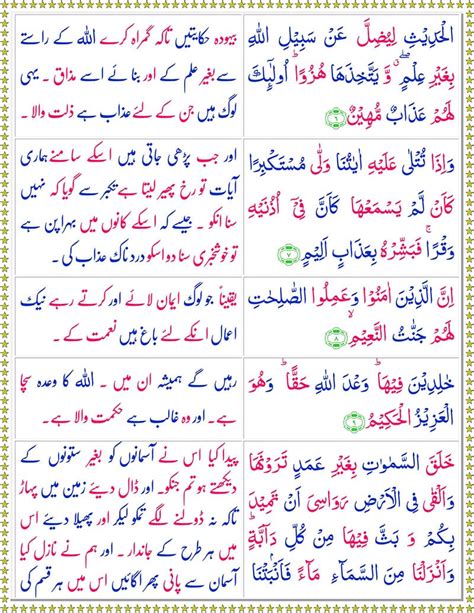 الْحَدِیْثِ لِیُضِلَّ عَنْ سَبِیْلِ اللّٰهِ
بِغَیْرِ عِلْمٍ ۖۗ وَّ یَتَّخِذَهَا هُزُوًا ؕ اُولٰٓىِٕكَ
لَهُمْ عَذَابٌ مُّهِیْنٌ ﴿۶﴾
بیہودہ حکایتیں تاکہ گمراہ کرے اللہ کے راستے
سے بغیر علم کے اور بنائے اسے مذاق ۔ یہی
لوگ ہیں جن کے لئے عذاب ہے ذلت والا ۔
وَاِذَا تُتْلٰی عَلَیْهِ اٰیٰتُنَا وَلّٰی مُسْتَكْبِرًا
كَاَنْ لَّمْ یَسْمَعْهَا كَاَنَّ فِیْۤ اُذُنَیْهِ
وَقْرًا ۚ فَبَشِّرْهُ بِعَذَابٍ اَلِیْمٍ ﴿۷﴾
اور جب پڑھی جاتی ہیں اسکے سامنے ہماری
آیات تو رخ پھیر لیتا ہے تکبر سے گویا کہ نہیں
سنا انکو ۔ جیسے کہ اسکے کانوں میں بہرا پن ہے
تو خوشخبری سنا دو اسکو درد ناک عذاب کی ۔
اِنَّ الَّذِیْنَ اٰمَنُوْا وَعَمِلُوا الصّٰلِحٰتِ
لَهُمْ جَنّٰتُ النَّعِیْمِ ۙ﴿۸﴾
یقیناً جو لوگ ایمان لائے اور کرتے رہے نیک
اعمال انکے لئے باغ ہیں نعمت کے ۔
خٰلِدِیْنَ فِیْهَا ؕ وَعْدَ اللّٰهِ حَقًّا ؕ وَهُوَ
الْعَزِیْزُ الْحَكِیْمُ ﴿۹﴾
رہیں گے ہمیشہ ان میں ۔ اللہ کا وعدہ سچا
ہے۔ اور وہ غالب ہے حکمت والا ہے ۔
خَلَقَ السَّمٰوٰتِ بِغَیْرِ عَمَدٍ تَرَوْنَهَا
وَاَلْقٰی فِی الْاَرْضِ رَوَاسِیَ اَنْ تَمِیْدَ
بِكُمْ وَ بَثَّ فِیْهَا مِنْ كُلِّ دَآبَّةٍ ؕ
وَاَنْزَلْنَا مِنَ السَّمَآءِ مَآءً فَاَنْۢبَتْنَا
پیدا کیا اس نے آسمانوں کو بغیر ستونوں کے
دیکھتے ہو تم جنکو۔ اور ڈال دیئے زمین میں پہاڑ
تاکہ نہ ڈولنے لگے تمکو لیکر اور پھیلا دیئے اس
میں ہر طرح کے جاندار ۔ اور ہم نے نازل کیا
آسمان سے پانی پھر اگائیں اس میں ہر قسم کی